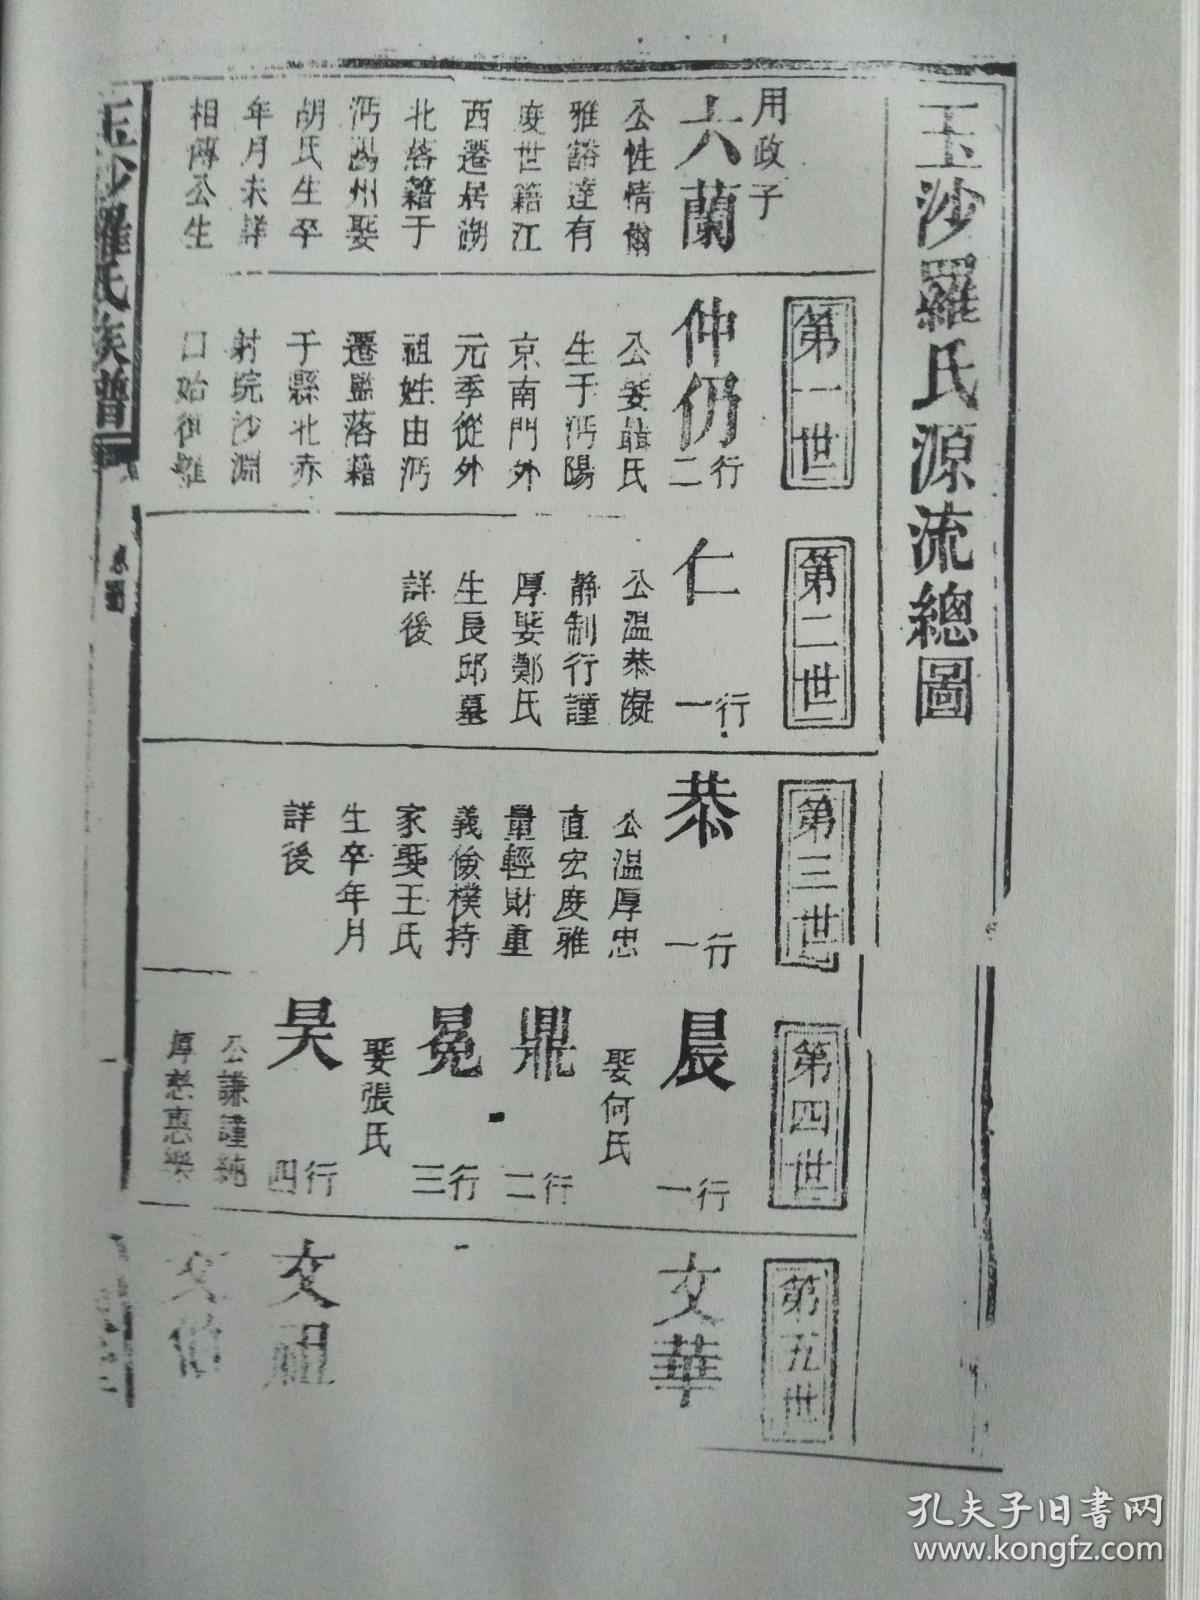 玉沙羅氏源流總圖
用政子
六蘭
公性情儒
雅豁達有
度世籍江
西遷居湖
北落籍于
沔陽州娶
胡氏生卒
年月未詳
相傳公生
第一世
仲仍
行二
公娶聶氏
生于沔陽
京南門外
元季從外
祖姓由沔
遷監落籍
于縣北赤
射垸沙淵
口始復羅
第二世
仁
行一
公温恭凝
靜制行謹
厚娶鄭氏
生長邱墓
詳後
第三世
恭
行一
公温厚忠
直宏度雅
量輕財重
義儉樸持
家娶王氏
生卒年月
詳後
第四世
晨
行一
娶何氏
鼎
行二
冕
行三
娶張氏
昊
行四
公謙謹純
厚慈惠樂
第五世
文華
文祖
文伯
玉沙羅氏族譜
一
孔夫子旧书网
www.kongfz.com